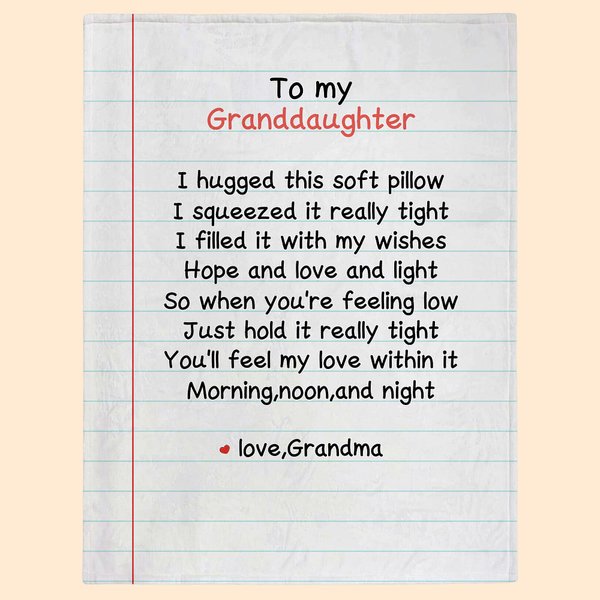 To my
Granddaughter
I hugged this soft pillow
I squeezed it really tight
I filled it with my wishes
Hope and love and light
So when you're feeling low
Just hold it really tight
You'll feel my love within it
Morning,noon,and night
love,Grandma